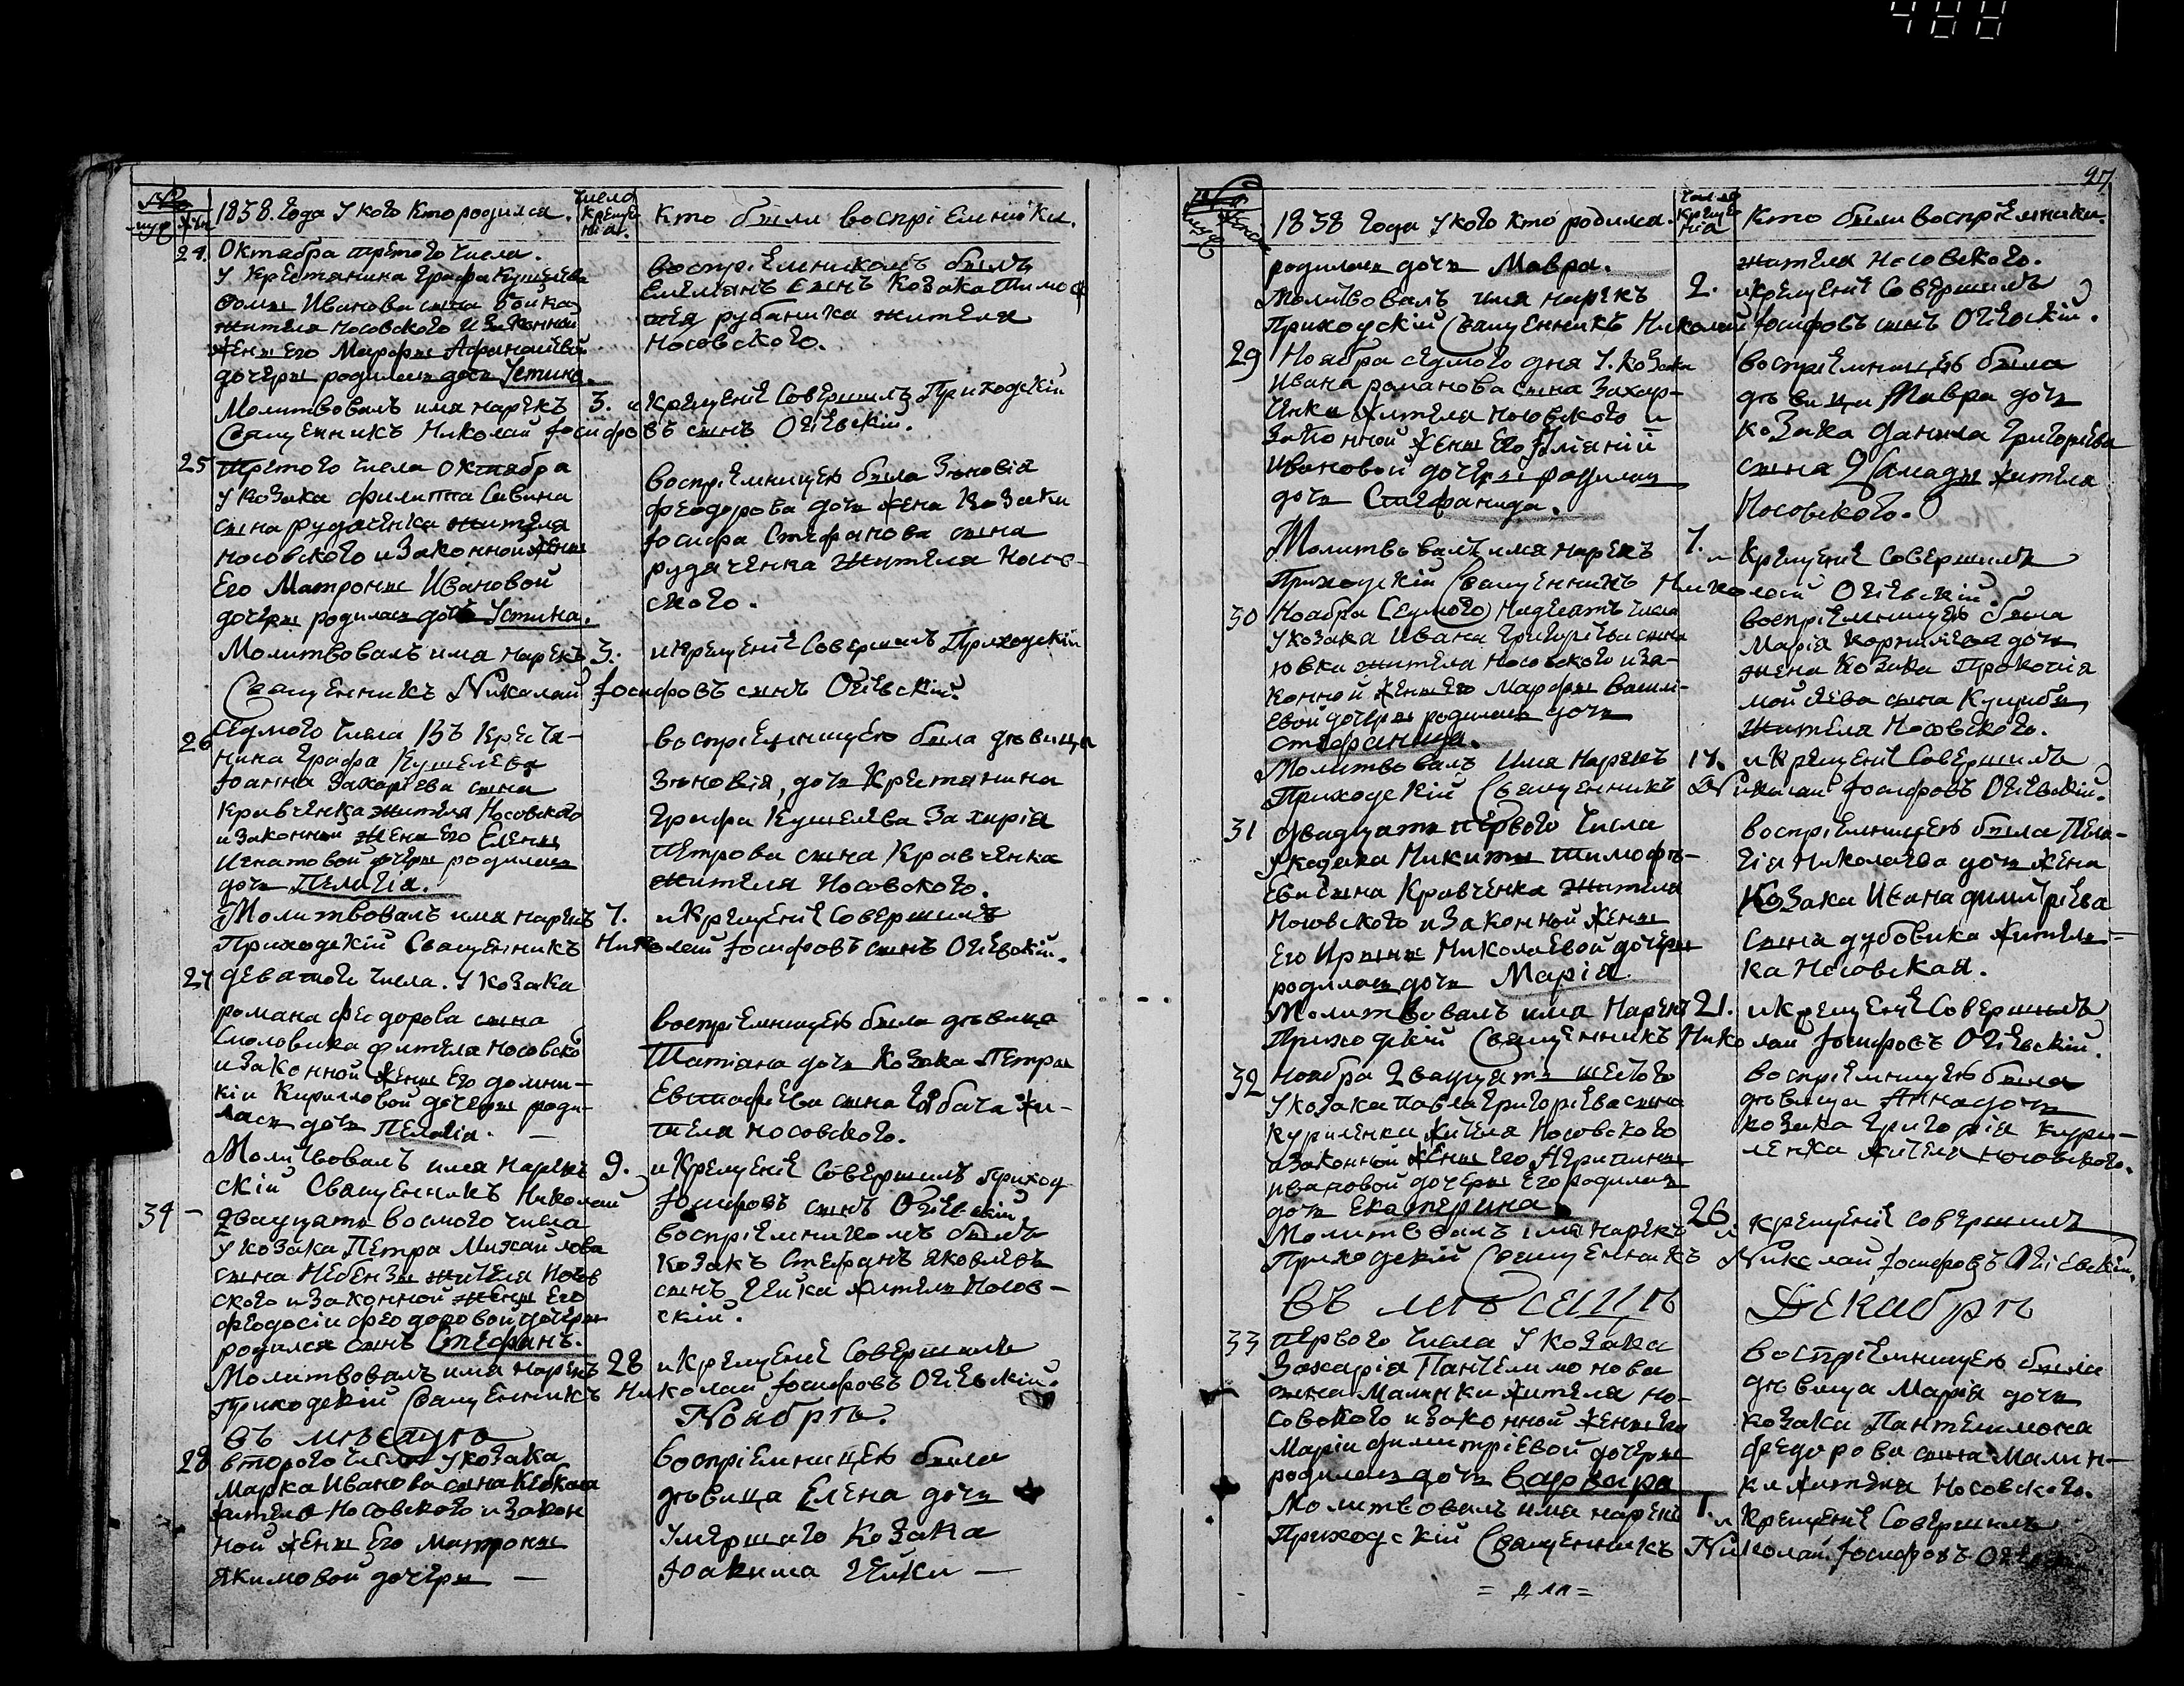 488
27
№
муж
жен
1838. Года У кого Кто родился.
Числа Крещения.
Кто были восприемники.
24. Октября третого числа.
У Крестянина Графа Кушелева
Ивана сына
жителя Носовского и Законной
жены Его Марфы Афанасиевой
дочеры родилась дочь Устина.
Молитвовалъ имя нарекъ 3.
Священникъ Николай Iосифовъ сынъ Огiевскiй.
восприемникомъ былъ
Емелiянъ сынъ Козака Тимоф
ея рубаника жителя
Носовского.
и Крещенiе Совершилъ Приходскiй
25 Третого числа Октября
У Козака филиппа Савина
сына рудченка жителя
Носовского и Законной жены
Его Матроны Ивановой
дочеры родилась дочь Устина.
Молитвовалъ имя нарекъ 3.
Священникъ Николай Iосифовъ сынъ Огiевскiй.
восприемницею была Зѣновiя
феодорова дочь жена Козака
Iосифа Стефанова сына
рудченка жителя Носов-
ского.
и крещенiе Совершилъ Приходскiй
26 Седмого числа Въ Крестя-
нина Графа Кушелева
Iоанна Захарiева сына
Кравченка жителя Носовского
и Законной жены Его Елены
Игнатовой дочеры родилась
дочь Пелагiя.
Молитвовалъ имя нарекъ 7.
Приходскiй Священникъ Николай Iосифовъ сынъ Огiевскiй.
восприемницею была дѣвица
Зѣновiя, дочь Крестянина
Графа Кушелева Захарiя
Петрова сына Кравченка
жителя Носовского.
и Крещенiе Совершилъ
27 девятого числа. У козака
романа Феодорова сына
жителя Носовско
и Законной жены Его домни-
кiи Кирилловой дочеры роди-
лась дочь Пелагiя. —
Молитвовалъ имя нарекъ 9.
скiй Священникъ Николай
восприемницею была дѣвица
Татiана дочь Козака Петра
Евстафiева сына жи-
теля Носовского.
и Крещенiе Совершилъ приход
Iосифовъ сынъ Огiевскiй
34 — Двадцать восмого числа
У козака Петра Михайлова
сына Небензы жителя Носов
ского и Законной жены Его
Феодосiи Феодоровой дочеры
родился сынъ Стефанъ.
Молитвовалъ имя нарекъ 28
Приходскiй Священникъ Николай Iосифовъ Огiевскiй.
восприемникомъ былъ
Козакъ Стефанъ Яковлевъ
сынъ житель Носов-
скiй.
и Крещенiе Совершилъ
въ мѣсяцѣ
Ноябрѣ.
28 второго числа У козака
Марка Иванова сына
жителя Носовского и Закон
ной жены Его Матроны
Якимовой дочеры —
восприемницею была
дѣвица Елена дочь
Умершаго Козака
Iоакима —
1838 Года У кого Кто родился.
Число Крещения
Кто были восприемники.
родилась дочь Мавра.
Молитвовалъ имя нарекъ 2.
Приходскiй Священникъ Николай Iосифовъ сынъ Огiевскiй.
жителя Носовского.
и крещенiе Совершилъ
29 Ноября седмого дня У. Козака
Ивана романова сына Захар-
ченка жителя Носовского и
Законной жены Его
Ивановой дочеры родилась
дочь Стефанида.
Молитвовалъ имя нарекъ 7.
Приходскiй Священникъ Николай Огiевскiй.
восприемницею была
дѣвица Мавра дочь
козака данила Григорiева
сына жителя
Носовского.
и Крещенiе Совершилъ
30 Ноября Седмого Надесять числа
У козака Ивана Григорiева сына
жителя Носовского и За-
конной жены Его Марфы васил-
евой дочеры родилась дочь
Стефанида.
Молитвовалъ Имя Нарекъ 17.
Приходскiй Священникъ Николай Iосифовъ Огiевскiй.
восприемницею была
Марiя Корнилiева дочь
жена Козака Прокопiя
сына
жителя Носовского.
и Крещенiе Совершилъ
31 двадцать первого числа
У козака Никиты Тимофѣ-
ева сына Кравченка жителя
Носовского и Законной жены
Его Ирыны Николаевой дочеры
родилась дочь Марiя
Молитвовалъ имя Нарекъ 21.
Приходскiй Священникъ Николай Iосифовъ Огiевскiй.
восприемницею была Пела-
гiя Николаева дочь жена
Козака Ивана димитрiева
сына дубовика жител-
ка Носовская.
и Крещенiе Совершилъ
32 Ноября Двадцать шестого
У козака павла Григорiева сына
Куриленка жителя Носовского
и Законной жены Его
Ивановой дочеры Его родилась
дочь Екатерина.
Молитвовалъ имя нарекъ 26.
Приходскiй Священникъ Николай Iосифовъ Огiевскiй.
восприемницею была
дѣвица Анна дочь
козака Григорiя Кури-
ленка жителя Носовского.
и крещенiе совершилъ
Въ мѣсяцѣ
Декабрѣ
33 первого числа У козака
Захарiя Пантелимонова
сына Малинки жителя Но-
совского и законной жены Его
Марiи Димитрiевой дочеры
родилась дочь варвара
Молитвовалъ имя нарекъ 1.
Приходскiй Священникъ Николай Iосифовъ Огiевскiй.
восприемницею была
дѣвица Марiя дочь
козака Пантелимона
федорова сына Малин-
ки жителя Носовского.
и Крещенiе Совершилъ